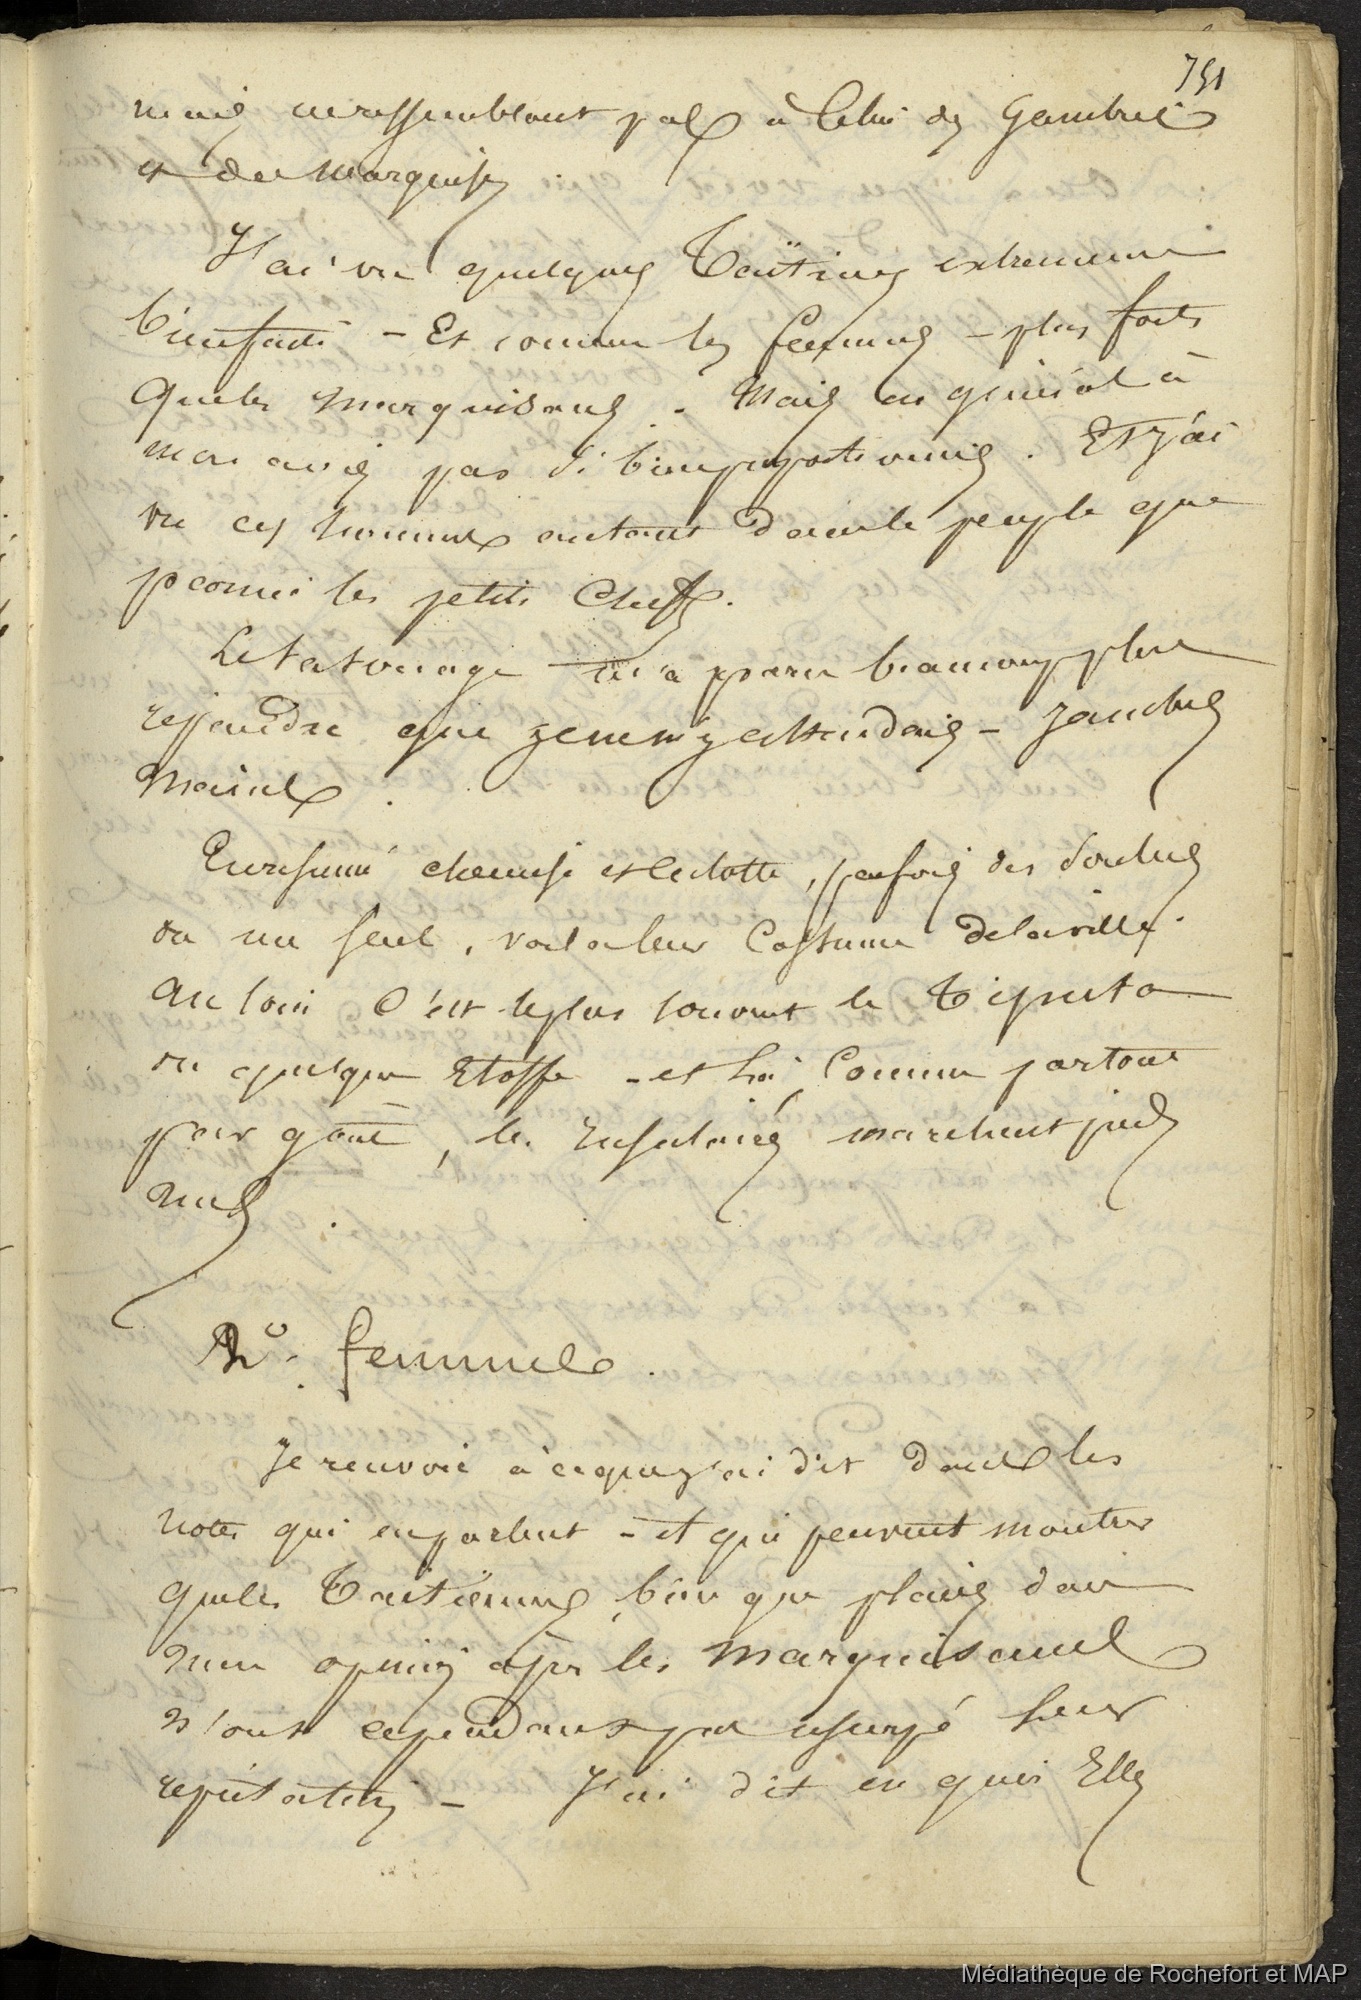 751
mais ne ressemblant pas à Celui des Gambiers
et des Marquises.
J'ai vu quelques Taïtiens extremement
bienfaits - Et comme les femmes - plus forts
que les marquisans. Mais en général à
mon avis pas si bien proportionnés. Et j'ai
vu ces hommes autant dans le peuple que
parmi les petits Chefs.
Le tatouage m'a paru beaucoup plus
repandu que je ne m'y attendais - Jambes
Mains.
En resumé chemise et culotte, parfois des souliers
ou un seul, voila leur Costume de la ville.
au loin C'est le plus souvent le Tiputa
ou quelque Etoffe - et là, Comme partout
par goût, les Insulaires marchent pieds
nuds.
2o. femmes.
Je renvoie à ce que j'ai dit dans les
notes qui en parlent - et qui peuvent montrer
que les Taitiennes, bien que placées dans
mon opinion après les Marquisanes
n'ont cependant pas usurpé leur
reputation - J'ai dit en quoi Elles
Médiathèque de Rochefort et MAP